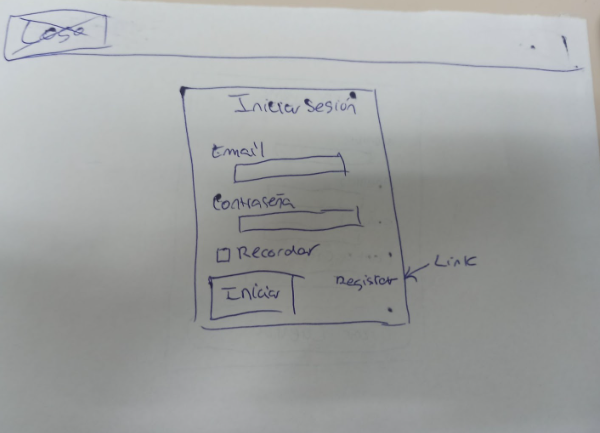 Iniciar Sesión
Email
Contraseña
Recordar
Iniciar
Registrar
Link